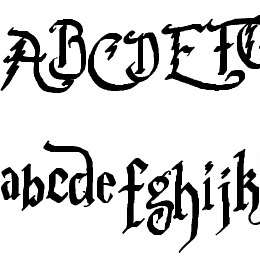 ABCDEFG
abcdefghijk